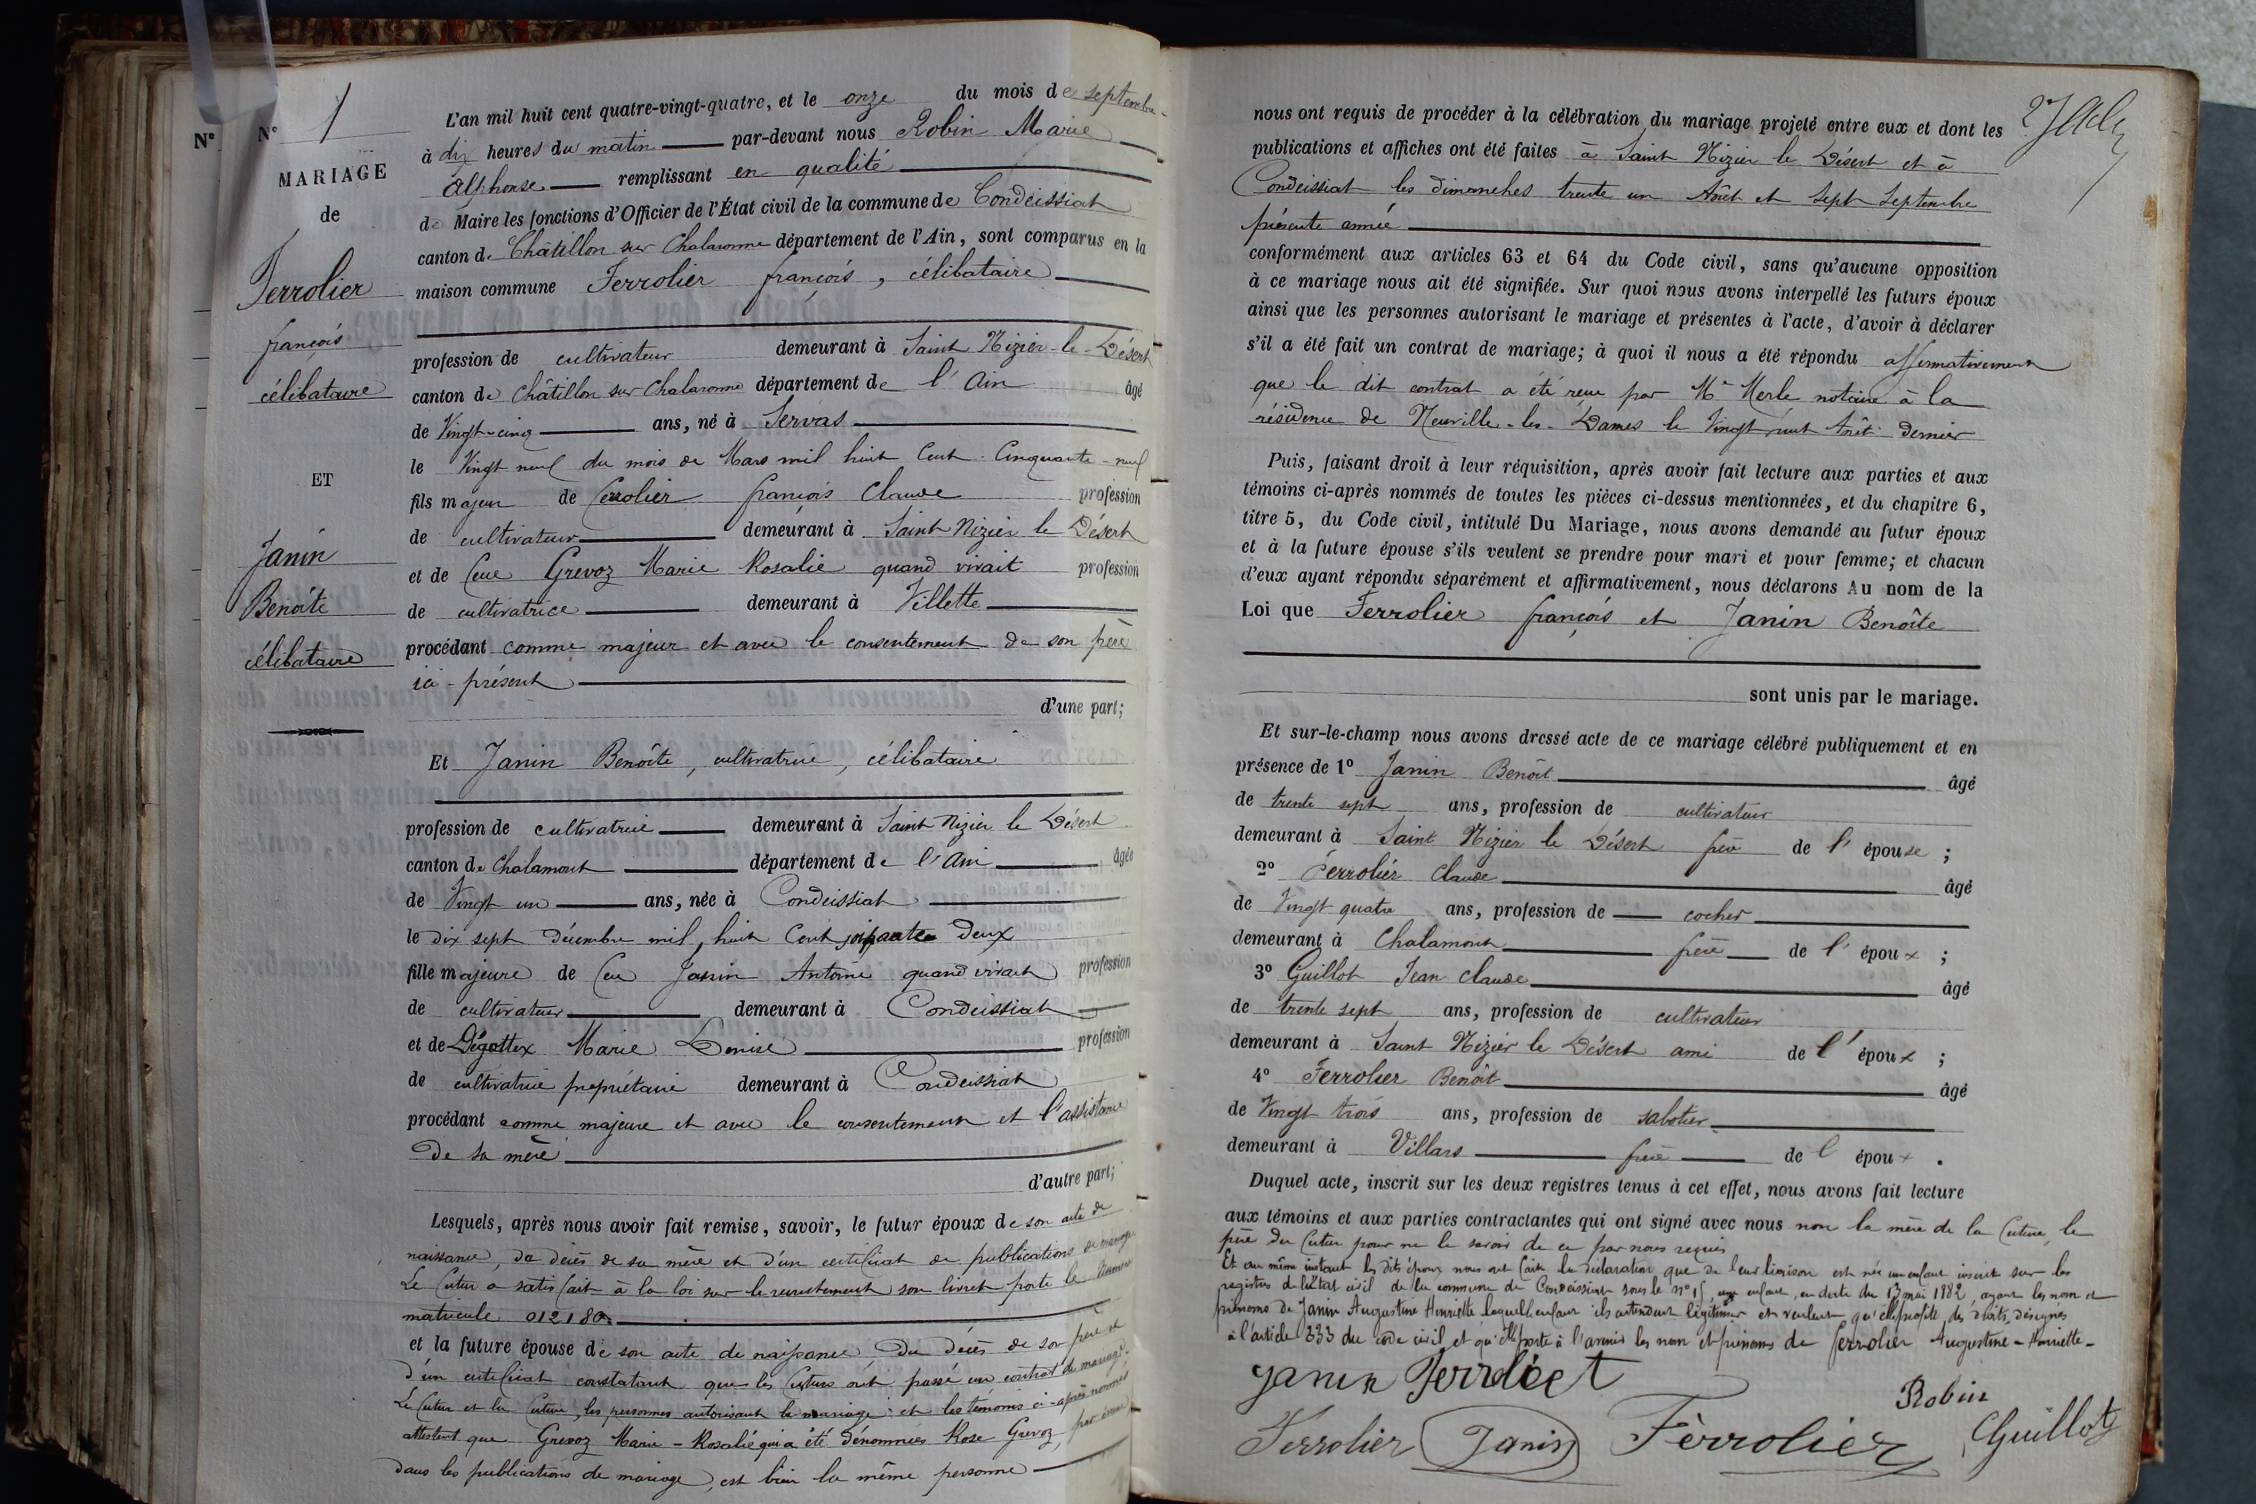 N° N° 1
MARIAGE
de
Ferrolier
françois
célibataire
ET
Janin
Benoîte
célibataire
L'an mil huit cent quatre-vingt-quatre, et le onze du mois de septembre
à dix heures du matin par-devant nous Robin Marie
Alphonse remplissant en qualité
de Maire les fonctions d'Officier de l'État civil de la commune de Condeissiat
canton de Châtillon sur Chalaronne département de l'Ain, sont comparus en la
maison commune Ferrolier françois, célibataire
profession de cultivateur demeurant à Saint Nizier-le-Désert
canton de Châtillon sur Chalaronne département de l'Ain âgé
de Vingt-cinq ans, né à Servas
le Vingt neuf du mois de Mars mil huit Cent Cinquante-neuf
fils majeur de Ferrolier françois Claude profession
de cultivateur demeurant à Saint Nizier le Désert
et de feue Grevoz Marie Rosalie quand vivait profession
de cultivatrice demeurant à Villette
procédant comme majeur et avec le consentement de son père
ici-présent
d'une part;
Et Janin Benoîte, cultivatrice, célibataire
profession de cultivatrice demeurant à Saint Nizier le Désert
canton de Chalamont département de l'Ain âgée
de Vingt un ans, née à Condeissiat
le dix sept Décembre mil huit Cent soixante Deux
fille majeure de feu Janin Antoine quand vivait profession
de cultivateur demeurant à Condeissiat
et de Dégottex Marie Denise profession
de cultivatrice propriétaire demeurant à Condeissiat
procédant comme majeure et avec le consentement et l'assistance
De sa mère
d'autre part;
Lesquels, après nous avoir fait remise, savoir, le futur époux de son acte de
naissance, de décès de sa mère et d'un certificat de publications de mariage
Le futur a satisfait à la loi sur le recrutement son livret porte le numéro
matricule 012180.
et la future épouse de son acte de naissance, Du Décès de son père et
d'un certificat constatant que les futurs ont passé un contrat de mariage.
Le futur et la future, les personnes autorisant le mariage et les témoins ci-après nommés
attestent que Grevoz Marie-Rosalie qui a été dénommée Rose Grevoz, par erreur
dans les publications de mariage, est bien la même personne
nous ont requis de procéder à la célébration du mariage projeté entre eux et dont les
publications et affiches ont été faites à Saint Nizier le Désert et à
Condeissiat les dimanches trente un Août et sept Septembre
présente année
conformément aux articles 63 et 64 du Code civil, sans qu'aucune opposition
à ce mariage nous ait été signifiée. Sur quoi nous avons interpellé les futurs époux
ainsi que les personnes autorisant le mariage et présentes à l'acte, d'avoir à déclarer
s'il a été fait un contrat de mariage; à quoi il nous a été répondu affirmativement
que le dit contrat a été reçu par Me Merle notaire à la
résidence de Neuville-les-Dames le Vingt huit Août Dernier
Puis, faisant droit à leur réquisition, après avoir fait lecture aux parties et aux
témoins ci-après nommés de toutes les pièces ci-dessus mentionnées, et du chapitre 6,
titre 5, du Code civil, intitulé Du Mariage, nous avons demandé au futur époux
et à la future épouse s'ils veulent se prendre pour mari et pour femme; et chacun
d'eux ayant répondu séparément et affirmativement, nous déclarons Au nom de la
Loi que Ferrolier françois et Janin Benoîte
sont unis par le mariage.
Et sur-le-champ nous avons dressé acte de ce mariage célébré publiquement et en
présence de 1° Janin Benoît âgé
de trente sept ans, profession de cultivateur
demeurant à Saint Nizier le Désert frère de l'épouse;
2° Ferrolier Claude âgé
de Vingt quatre ans, profession de cocher
demeurant à Chalamont frère de l'époux;
3° Guillot Jean Claude âgé
de trente sept ans, profession de cultivateur
demeurant à Saint Nizier le Désert ami de l'époux;
4° Ferrolier Benoît âgé
de Vingt trois ans, profession de sabotier
demeurant à Villars frère de l époux.
Duquel acte, inscrit sur les deux registres tenus à cet effet, nous avons fait lecture
aux témoins et aux parties contractantes qui ont signé avec nous non la mère de la future, le
père du futur pour ne le savoir de ce par nous requis
Et au même instant les dits époux nous ont fait la déclaration que de leur liaison est née un enfant inscrit sur les
registres de l'état civil de la commune de Condeissiat sous le n° 15, enfant, en date du 13 mai 1882, ayant les nom et
prénoms de Janin Augustine Henriette laquelle enfant ils entendent légitimer et veulent qu'elle profite des droits désignés
à l'article 333 du code civil et qu'elle porte à l'avenir les nom et prénoms de Ferrolier Augustine-Henriette-
Janin Ferrolier
Robin
Ferrolier Janin Ferrolier Guillot